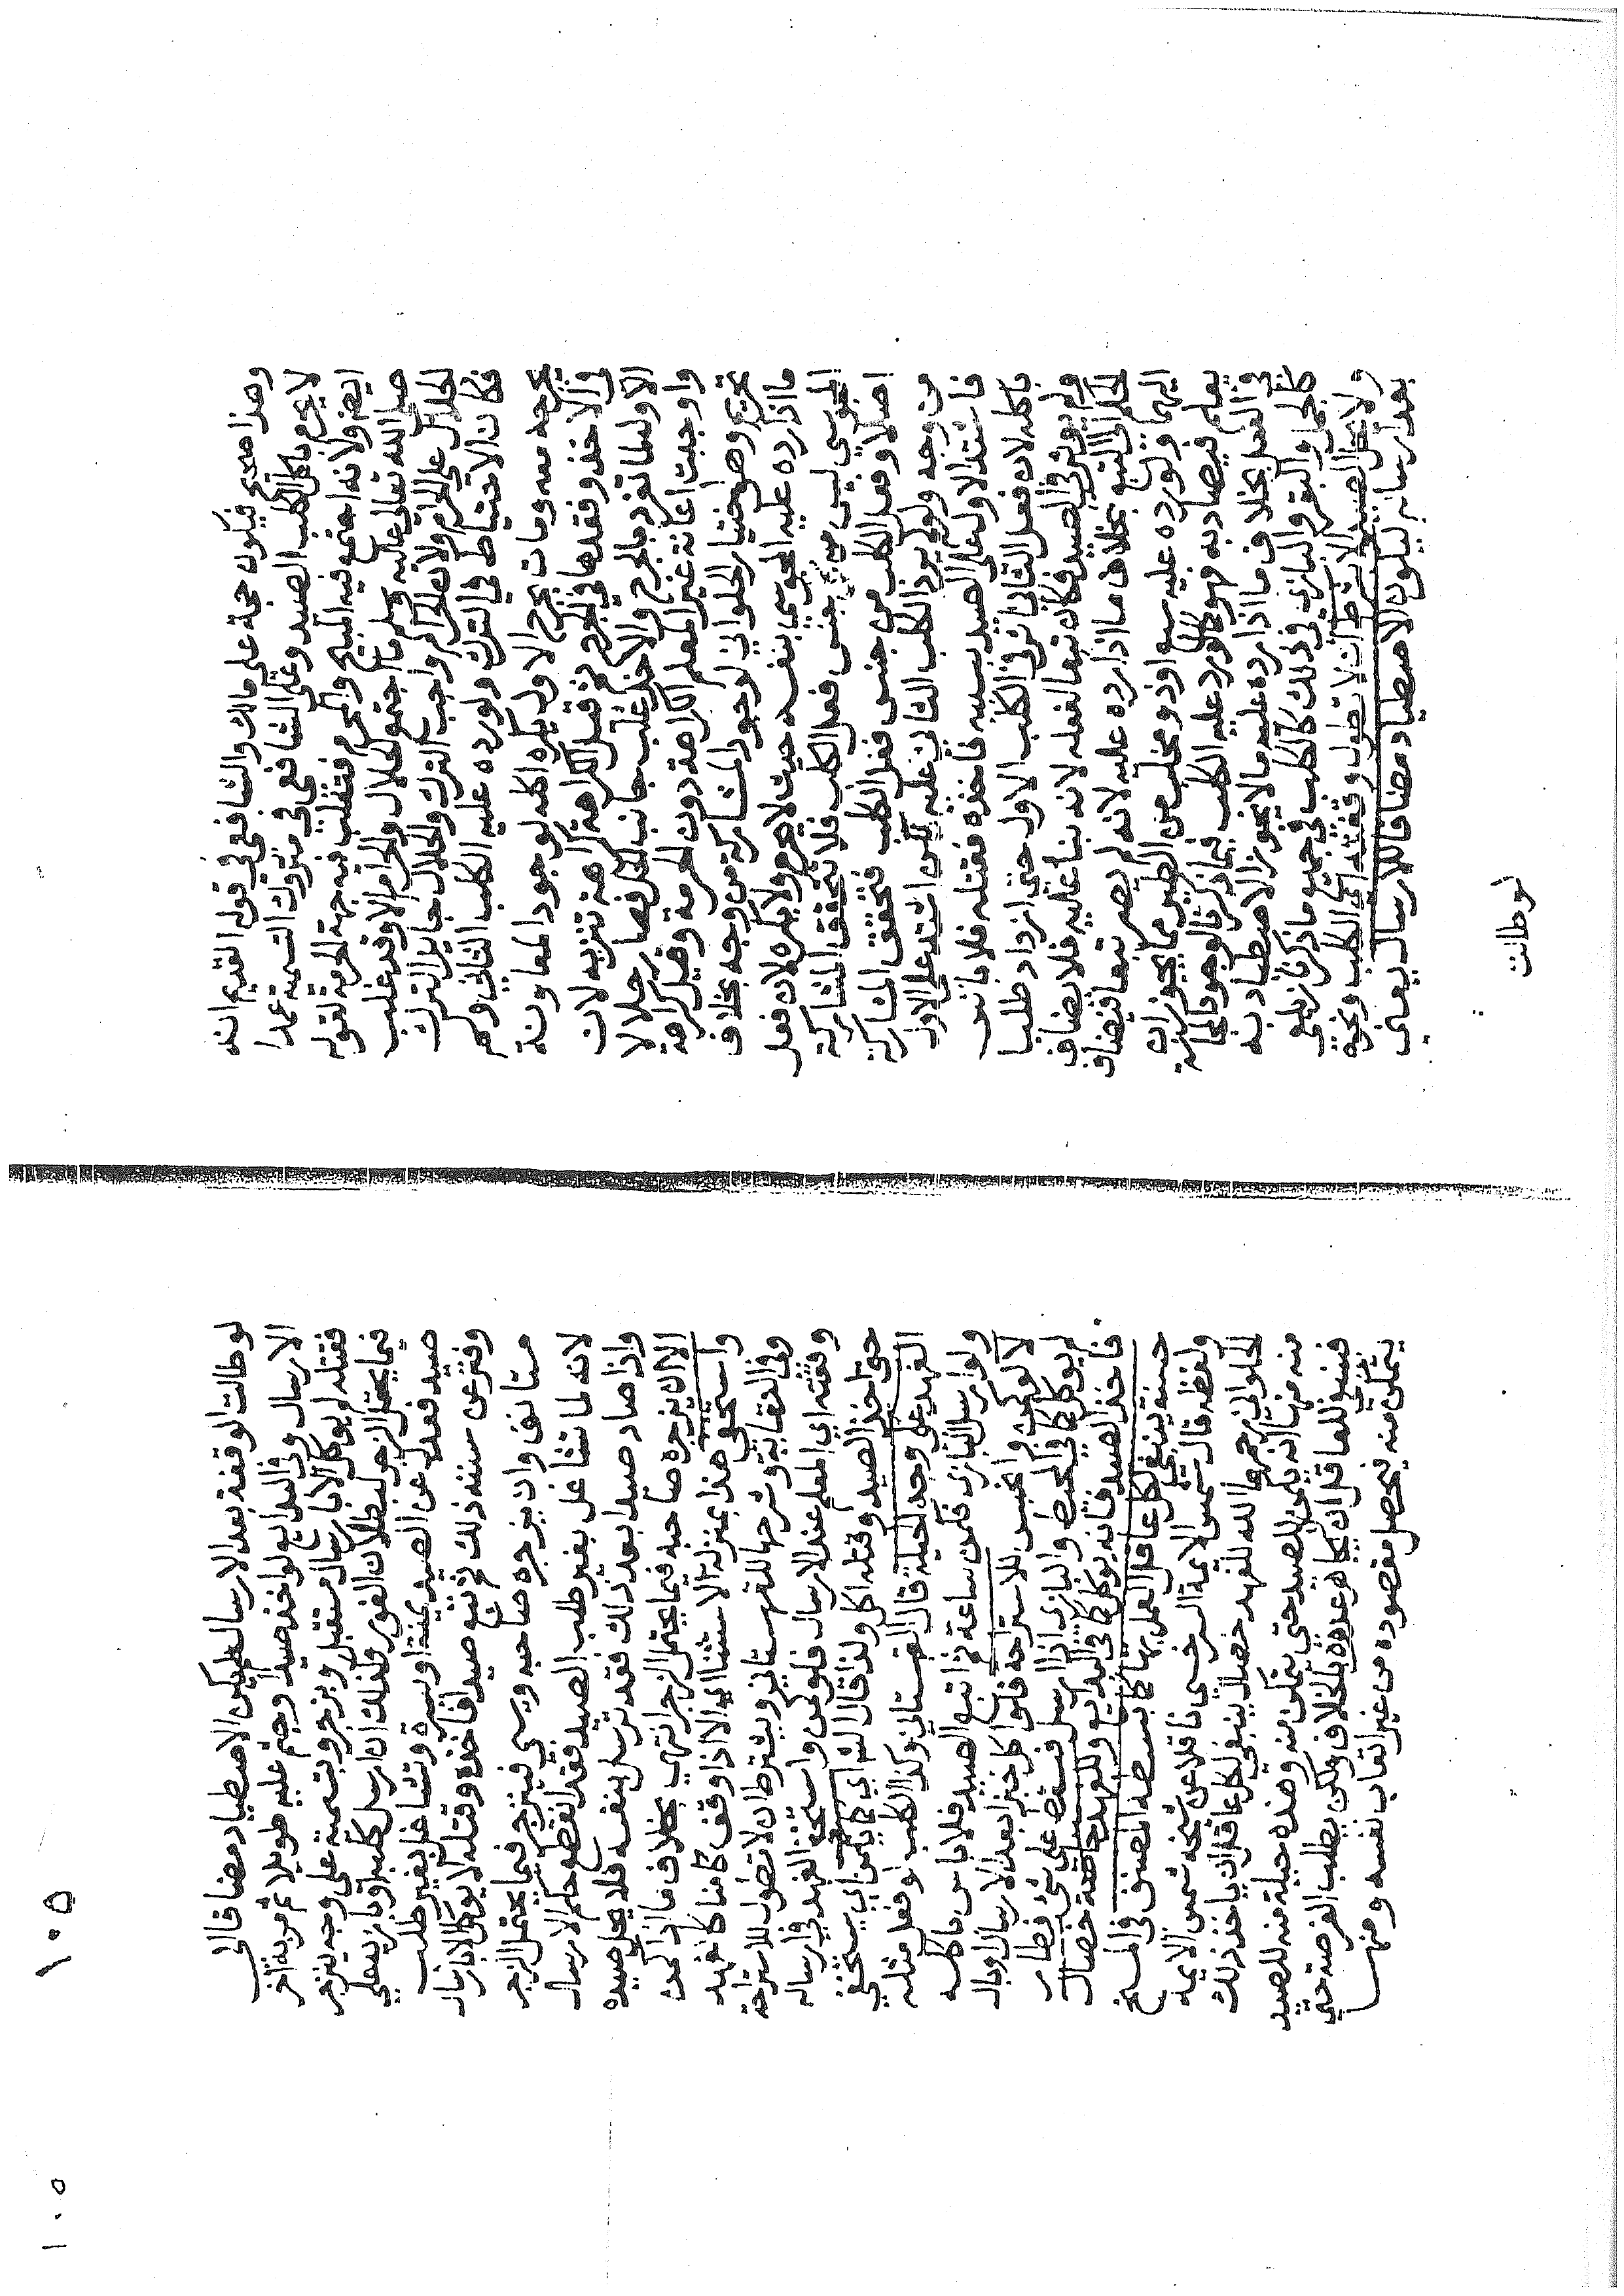 وهذا صحيح فيكون حجة على مالك والشافعي في قوله القديم انه
لا يحرم باكل الكلب الصيد وعلى الشافعي في متروك التسمية عمدا
ايضا ولانه اجتمع فيه المبيح والمحرم فتغلب فيه جهة الحرمة لقوله
صلى الله تعالى عليه وسلم ما اجتمع الحلال والحرام الا وقد غلب
الحلال على الحرام ولان الحرام واجب الترك والحلال جايز الترك
فكان الاحتياط في الترك ولو رده عليه الكلب الثاني ولم
يجرحه معه ومات بجرح الاول يكره اكله لوجود المعاونة
في الاخذ وفقدها في الجرح ثم قيل الكراهة كراهة تنزيه لان
الاول لما تفرد بالجرح والاخذ غلب جانب الحل فصار حلالا
واوجبت اعانة غير المعلم الكراهة دون الحرمة وقيل كراهة
تحريم وهو اختيار الحلواني لوجود المشاركة من وجه بخلاف
ما اذا رده عليه المجوسي بنفسه حيث لا يحرم ولا يكره لان فعل
المجوسي ليس من جنس فعل الكلب فلا تتحقق المشاركة
اصلا وفعل الكلب من جنس فعل الكلب فتتحقق المشاركة
من وجه ولو لم يرد الكلب الثاني عليه لكن اشتد على الاول
فاشتد الاول على الصيد بسببه فاخذه فقتله فلا باس
باكله لان فعل الثاني اثر في الكلب الاول حتى ازداد طلبا
ولم يوثر في الصيد فكان تبعا لفعله لانه بناء عليه فلا يضاف
الحكم الى التبع بخلاف ما اذا رده عليه لانه لم يصر تبعا فيضاف
اليهما ولو رده عليه سبع او ذو مخلب من الطيور مما يجوز ان
يعلم فيصاد به فهو كما لو رد عليه الكلب فيما ذكرنا لوجود المجانسة
في الفعل بخلاف ما اذا رده عليه ما لا يجوز الاصطياد به
كالجمل والبقر والبازي في ذلك كالكلب في جميع ما ذكرنا زيلعي
ولا يحل الصيد الا بشرط ان لا تطول وقفته اي الكلب ونحوه
بعد ارساله ليكون الاصطياد مضافا للارسال يعني
لو طالت
لو طالت وقفته بعد الارسال لم يكن الاصطياد مضافا الى
الارسال وفي البدايع لو اخذ صيدا وجثم عليه طويلا ثم مر به اخر
فقتله لم يوكل الا بارسال مستقبل او بزجر وتسمية على وجه ينزجر
فيما يحتمل الزجر لبطلان الفور وكذلك ان ارسل كلبه او بازيه على
صيد فعدل عن الصيد يمنة او يسرة وتشاغل بغير طلب
وفتر عن سننه ذلك ثم تبع صيدا فاخذه وقتله لا يوكل الا بارسال
مستانف وان يزجره صاحبه ويسمي فينزجر فيما يحتمل الزجر
لانه لما تشاغل بغير طلب الصيد فقد انقطع حكم الارسال
واذا صاد صيدا بعد ذلك فقد ترسل بنفسه فلا يحل صيده
الا ان يزجره صاحبه فيما يحتمل الزجر انتهى بخلاف ما اذا كمن
واستخفى هذا بمنزلة الاستثناء اي الا اذا وقف كامنا كالفهد
وفي النقاية وشرحها للقهستاني ويشترط ان لا تطول للاستراحة
وقفته اي المعلم عند الارسال فلو كمن واستخفى الفهد في ارساله
حتى اخذ الصيد وقتله اكل ولذا قال اي كما يكمن اي يستخفي
الفهد على وجه الحيلة قال القهستاني وكذا الكلب لو فعل مثله
ولو ارسل البازي فكمن ساعة ثم اتبع الصيد فلا باس باكله
لا لو مكث وانحبس للاستراحة فلو اكل خبزا بعد الارسال او بال
لم يوكل كما في المحيط والبازي اذا ارسل فسقط على شئ فطار
فاخذ الصيد فانه يوكل كما في البدايع وللفهد خاصة خصال
حسنة ينبغي لكل عاقل العمل بها كما بسطه المصنف في المنح
ولفظه قال شمس الايمة السرخسي ناقلا عن شيخه شمس الايمة
الحلواني رحمهما الله للفهد خصال ينبغي لكل عاقل ان ياخذ ذلك
منه منها انه يكمن للصيد حتى يتمكن منه وهذه حيلة منه للصيد
فينبغي للعاقل ان لا يجاهر عدوه بالخلاف ولكن يطلب الفرصة حتى
يتمكن منه فيحصل مقصوده من غير اتعاب نفسه ومنها
١٠٥
١٠٥